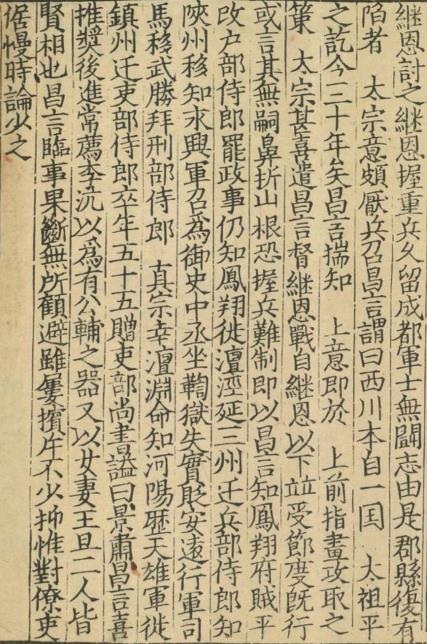 繼恩討之繼恩握重兵久留成都軍士無鬬志由是郡縣復有
陷者　太宗意頗厭兵召昌言謂曰西川本自一国　太祖平
之訖今三十年矣昌言揣知　上意即於　上前指畫攻取之
策　太宗甚喜遣昌言督繼恩戰自繼恩以下並受節度旣行
或言其無嗣鼻折山根恐握兵難制即以昌言知鳳翔府賊平
改户部侍郎罷政事仍知鳳翔徙澶涇延三州迁兵部侍郎知
陝州移知永興軍召爲御史中丞坐鞫獄失實貶安遠行軍司
馬移武勝拜刑部侍郎　真宗幸澶淵命知河陽歷天雄軍徙
鎮州迁吏部侍郎卒年五十五贈吏部尚書謚曰景肅昌言喜
推奬後進常薦李沆以爲有公輔之器又以女妻王旦二人皆
賢相也昌言臨事果斷無所顧避雖屢擯斥不少抑惟對僚吏
倨慢時論少之